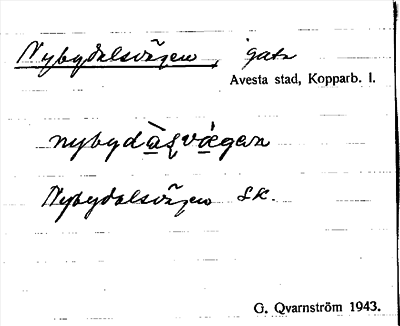 Nybydalsvägen, gata
Avesta stad, Kopparb. l.
nybydàl̥svä́gen
Nybydalsvägen EK.
G. Qvarnström 1943.